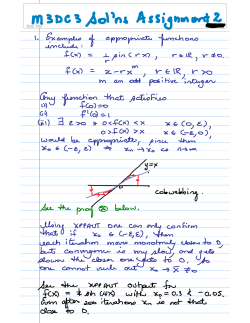 M3DC3 Sol'ns Assignment 2
1. Examples of appropriate functions
include:
f(x) = 1/r sin(rx), r∈ℝ, r≠0.
f(x) = x-rx^m, r∈ℝ, r>0
m an odd positive integer
Any function that satisfies
(i) f(0)=0
(ii) f'(0)=1
(iii) ∃ ε>0 ∋ 0<f(x)<x x∈(0,ε),
0>f(x)>x x∈(-ε,0),
would be appropriate, since then
x₀∈(-ε,ε) ⇒ xₙ→ as n→∞
y=x
cobwebbing.
See the proof below.
Using XPPAUT one can only confirm
that if x₀∈(-ε,ε), then
each iteration moves monotonely closer to 0,
but convergence is very slow, and gets
slower the closer one gets to 0. So
one cannot rule out xₙ→x̄≠0
See the XPPAUT output for
f(x) = sin(x) with x₀=0.3 & -0.05.
Even after 200 iterations xₙ is not that
close to 0.